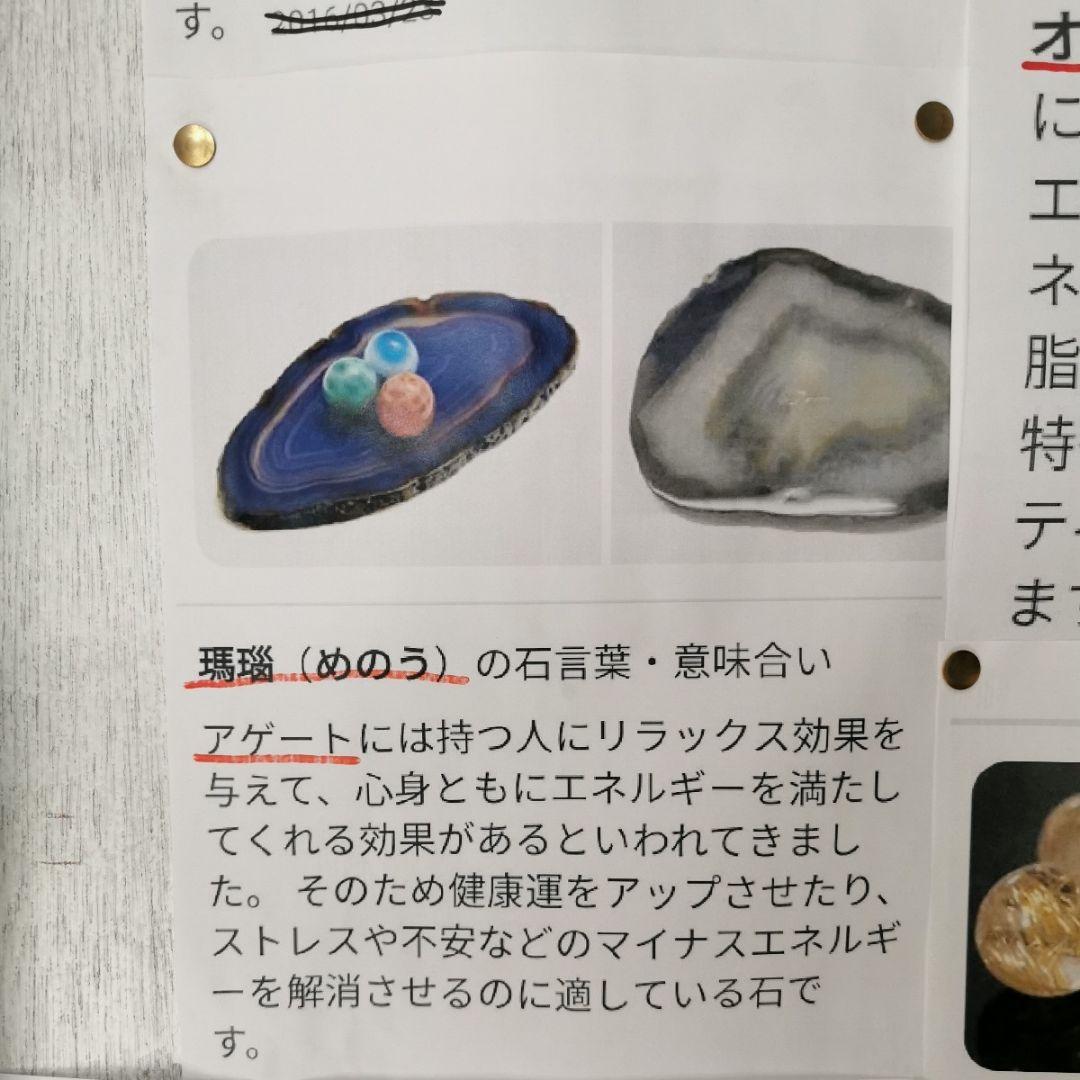 す。
瑪瑙（めのう）の石言葉・意味合い
アゲートには持つ人にリラックス効果を
与えて、心身ともにエネルギーを満たし
てくれる効果があるといわれてきまし
た。 そのため健康運をアップさせたり、
ストレスや不安などのマイナスエネルギ
ーを解消させるのに適している石で
す。
オ
に
エ
ネ
脂
特
テ
ます